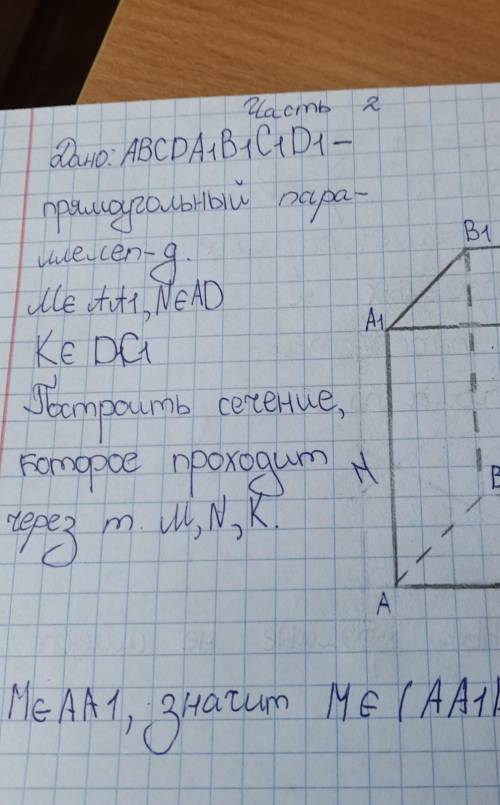 Часть 2
Дано: ABCDA1B1C1D1 –
прямоугольный пара-
ллелеп-д.
M∈ AA1, N∈AD
K∈ DC1
Построить сечение,
которое проходит
через т. M, N, K.
B1
A1
M
B
A
M∈AA1, значит M∈ (AA1